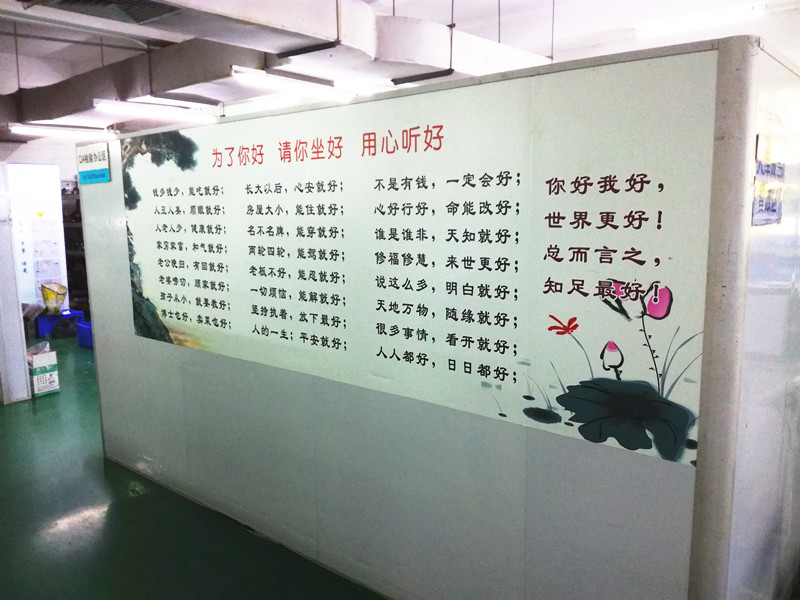 为了你好 请你坐好 用心听好
钱多钱少，能吃就好；
人丑人美，顺眼就好；
人老人少，健康就好；
家穷家富，和气就好；
老公晚归，有回就好；
老婆唠叨，顾家就好；
孩子从小，就要教好；
博士也好，卖菜也好；
长大以后，心安就好；
房屋大小，能住就好；
名不名牌，能穿就好；
两轮四轮，能驾就好；
老板不好，能忍就好；
一切烦恼，能解就好；
坚持执着，放下最好；
人的一生；平安就好；
不是有钱，一定会好；
心好行好，命能改好；
谁是谁非，天知就好；
修福修慧，来世更好；
说这么多，明白就好；
天地万物，随缘就好；
很多事情，看开就好；
人人都好，日日都好；
你好我好，
世界更好！
总而言之，
知足最好！